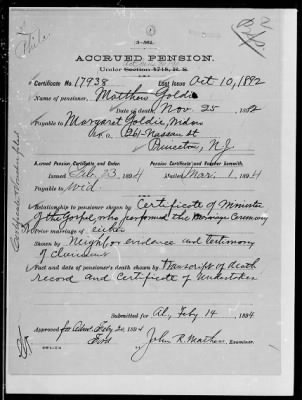 Phila
3-561.
ACCRUED PENSION.
Act Mar
Under Section 4718, R. S.
Certificate No. 17938 Last Issue Oct 10, 1892
Name of pensioner, Matthew Goldie
Date of death, Nov. 25 1892
Payable to Margaret Goldie, Widow
P.O. 261 Nassau St
Princeton, N.J.
Accrued Pension, Certificate and Order. Pension Certificate and Voucher herewith.
Issued Feb. 23 1894 Mailed Mar. 1 1894
Payable to Wid.
Relationship to pensioner shown by Certificate of Minister
of the Gospel, who performed the Marriage Ceremony
Prior marriage of either
Shown by Neighbor evidence and testimony
of claimant
Fact and date of pensioner's death shown by Transcript of death
record and Certificate of Undertaker
Submitted for Al, Feby 14, 1894
Approved for Adm. Feby 20, 1894
John R. Mathew, Examiner.